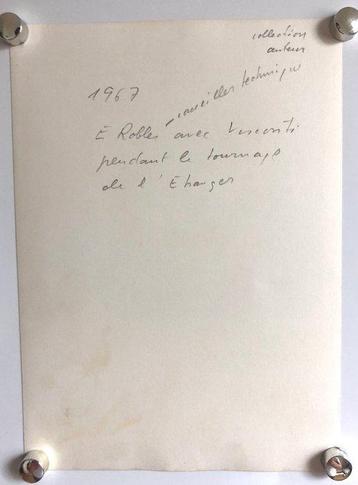 collection
auteur
1967
conseiller technique
E Robles avec Visconti
pendant le tournage
de l'Etranger